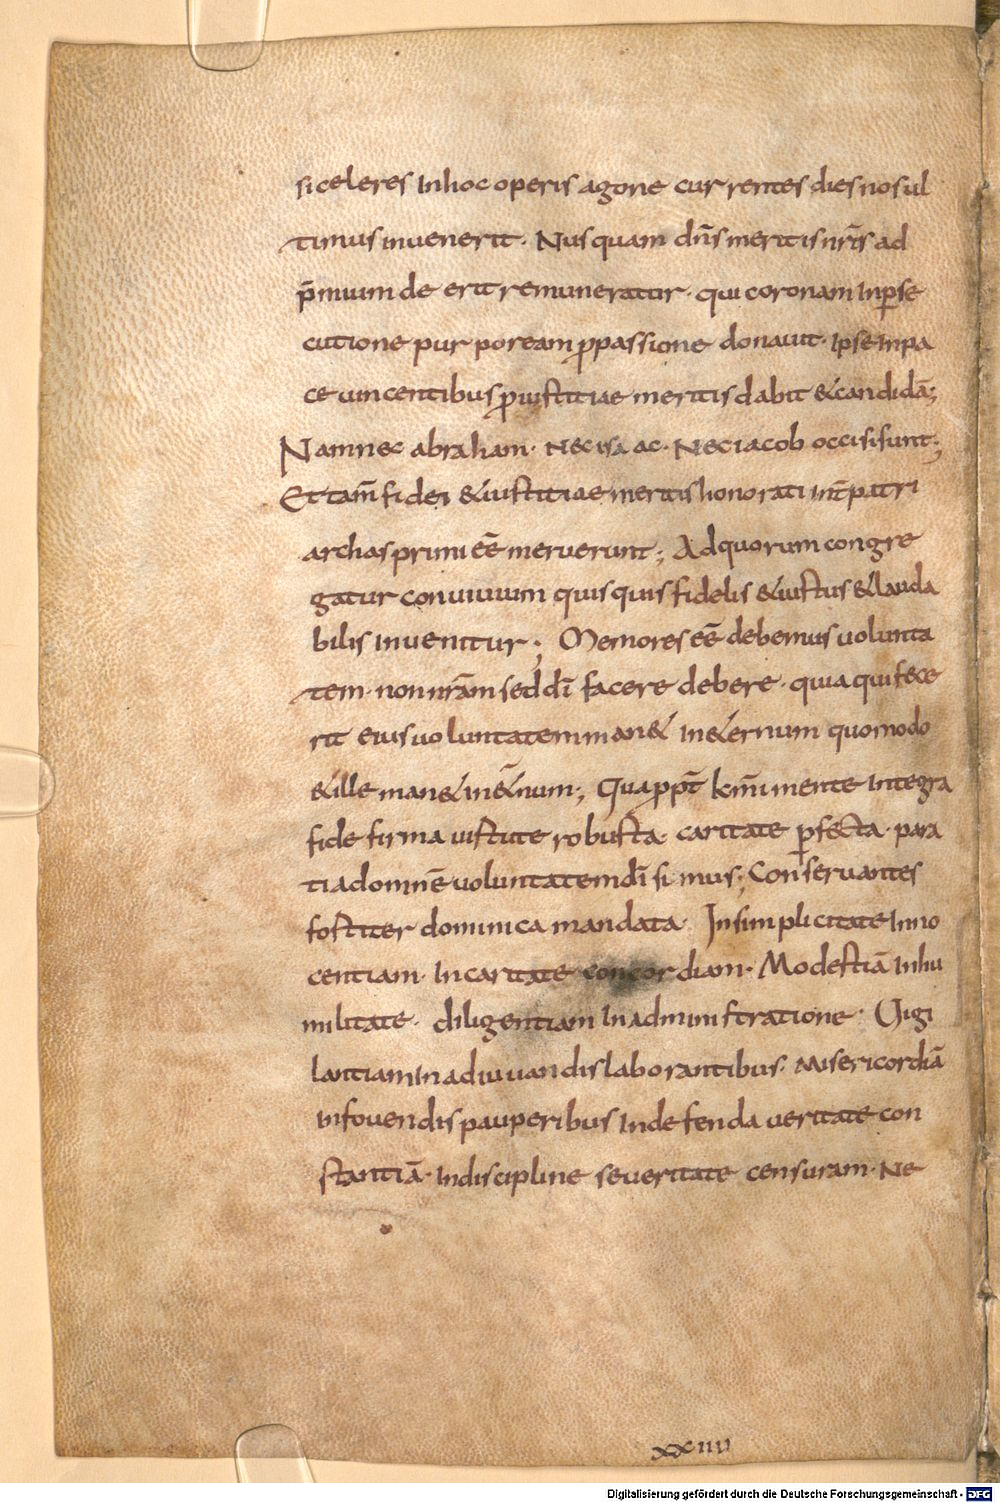 si celeres In hoc operis agone currentes dies nos ul
timus invenerit. Nusquam dn̄s meritis nr̄is ad
p̄mium de erit remuneratur. qui coronam In ꝑse
cutione pur poream ꝓ passione donavit. Ipse In pa
ce vincentibus ꝓ iustitiae meritis dabit & candidā;
Nam nec abraham. Nec isa ac. Nec iacob occisi sunt;
Et tam̄ fidei & iustitiae meritis honorati int̄ patri
archas primi eē meruerunt; Ad quorum congre
gatur convivium quis quis fidelis & iustus & lauda
bilis Invenitur; Memores eē debemus volunta
tem. non nr̄am sed dī facere debere. quia qui fece
rit eius voluntatem man& In &ernum quomodo
& ille man& in &̄num; Qua ꝓpt̄ km̄i mente Integra
fide firma virtute robusta. caritate ꝑfecta. para
ti ad omnē voluntatem dī simus; Conservantes
fortiter dominica mandata. In simplicitate Inno
centiam. In caritate concordiam. Modestiā In hu
militate. diligentiam In administratione. Vigi
lantiam In adiuvandis laborantibus. Misericordiā
In fovendis pauperibus In defenda veritate con
stantiā. In discipline severitate censuram. Ne
xxiiii
Digitalisierung gefördert durch die Deutsche Forschungsgemeinschaft - DFG